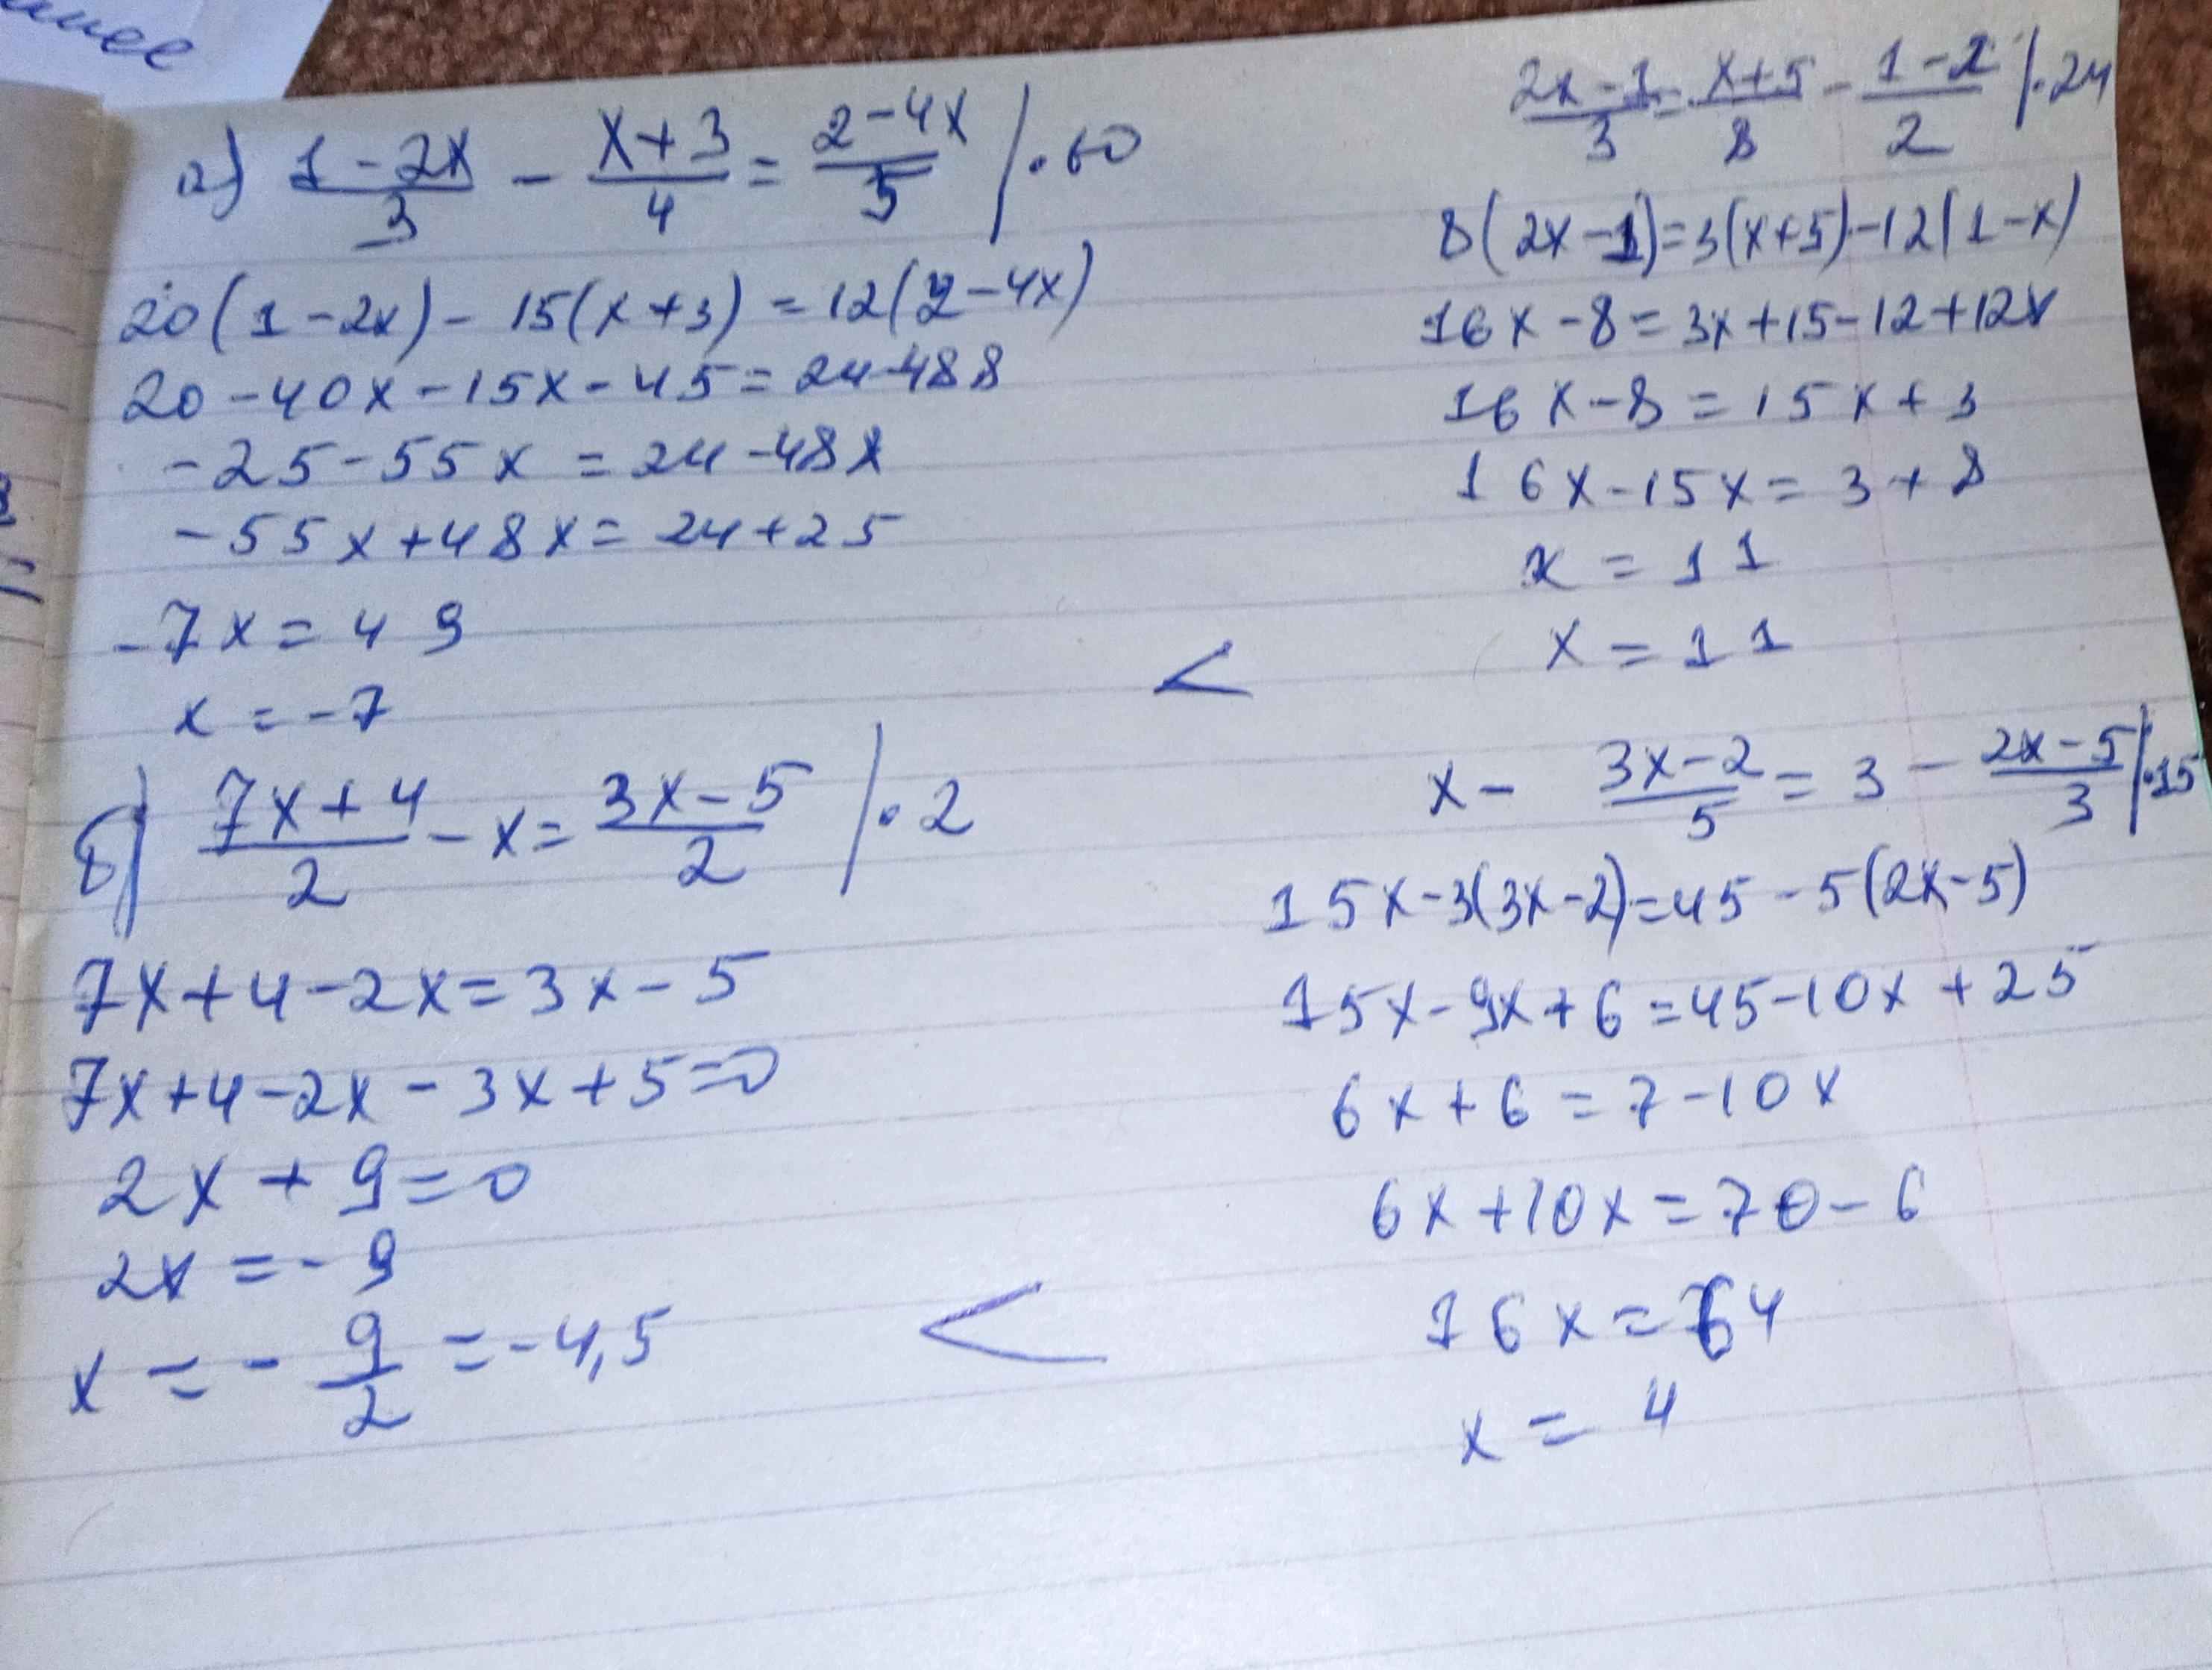 а) (1-2x)/3 - (x+3)/4 = (2-4x)/5 /·60
20(1-2x)-15(x+3)=12(2-4x)
20-40x-15x-45=24-488
-25-55x=24-48x
-55x+48x=24+25
-7x=49
x=-7
б) (7x+4)/2 - x = (3x-5)/2 /·2
7x+4-2x=3x-5
7x+4-2x-3x+5=0
2x+9=0
2x=-9
x=-9/2=-4,5
(2x-1)/3 = (x+5)/8 - (1-x)/2 /·24
8(2x-1)=3(x+5)-12(1-x)
16x-8=3x+15-12+12x
16x-8=15x+3
16x-15x=3+8
x=11
<
x=11
x - (3x-2)/5 = 3 - (2x-5)/3 /·15
15x-3(3x-2)=45-5(2x-5)
15x-9x+6=45-10x+25
6x+6=7-10x
6x+10x=70-6
<
16x=64
x=4